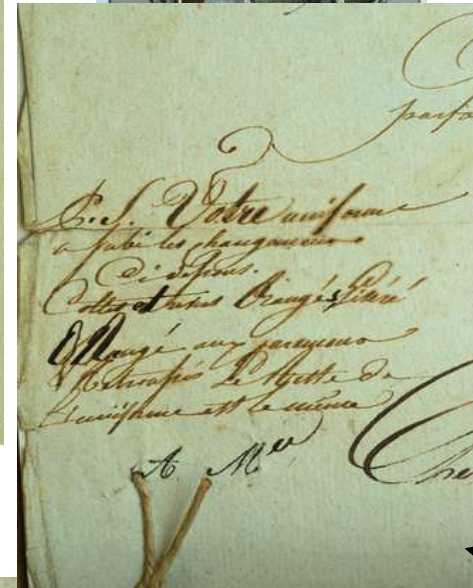 parfa
P.S. Votre uniforme
a subi les changemens
Ci dessous.
Collet et
Rouge aux paremens
& Retroussis Le Reste de
L'uniforme est le même
A Mr
Che